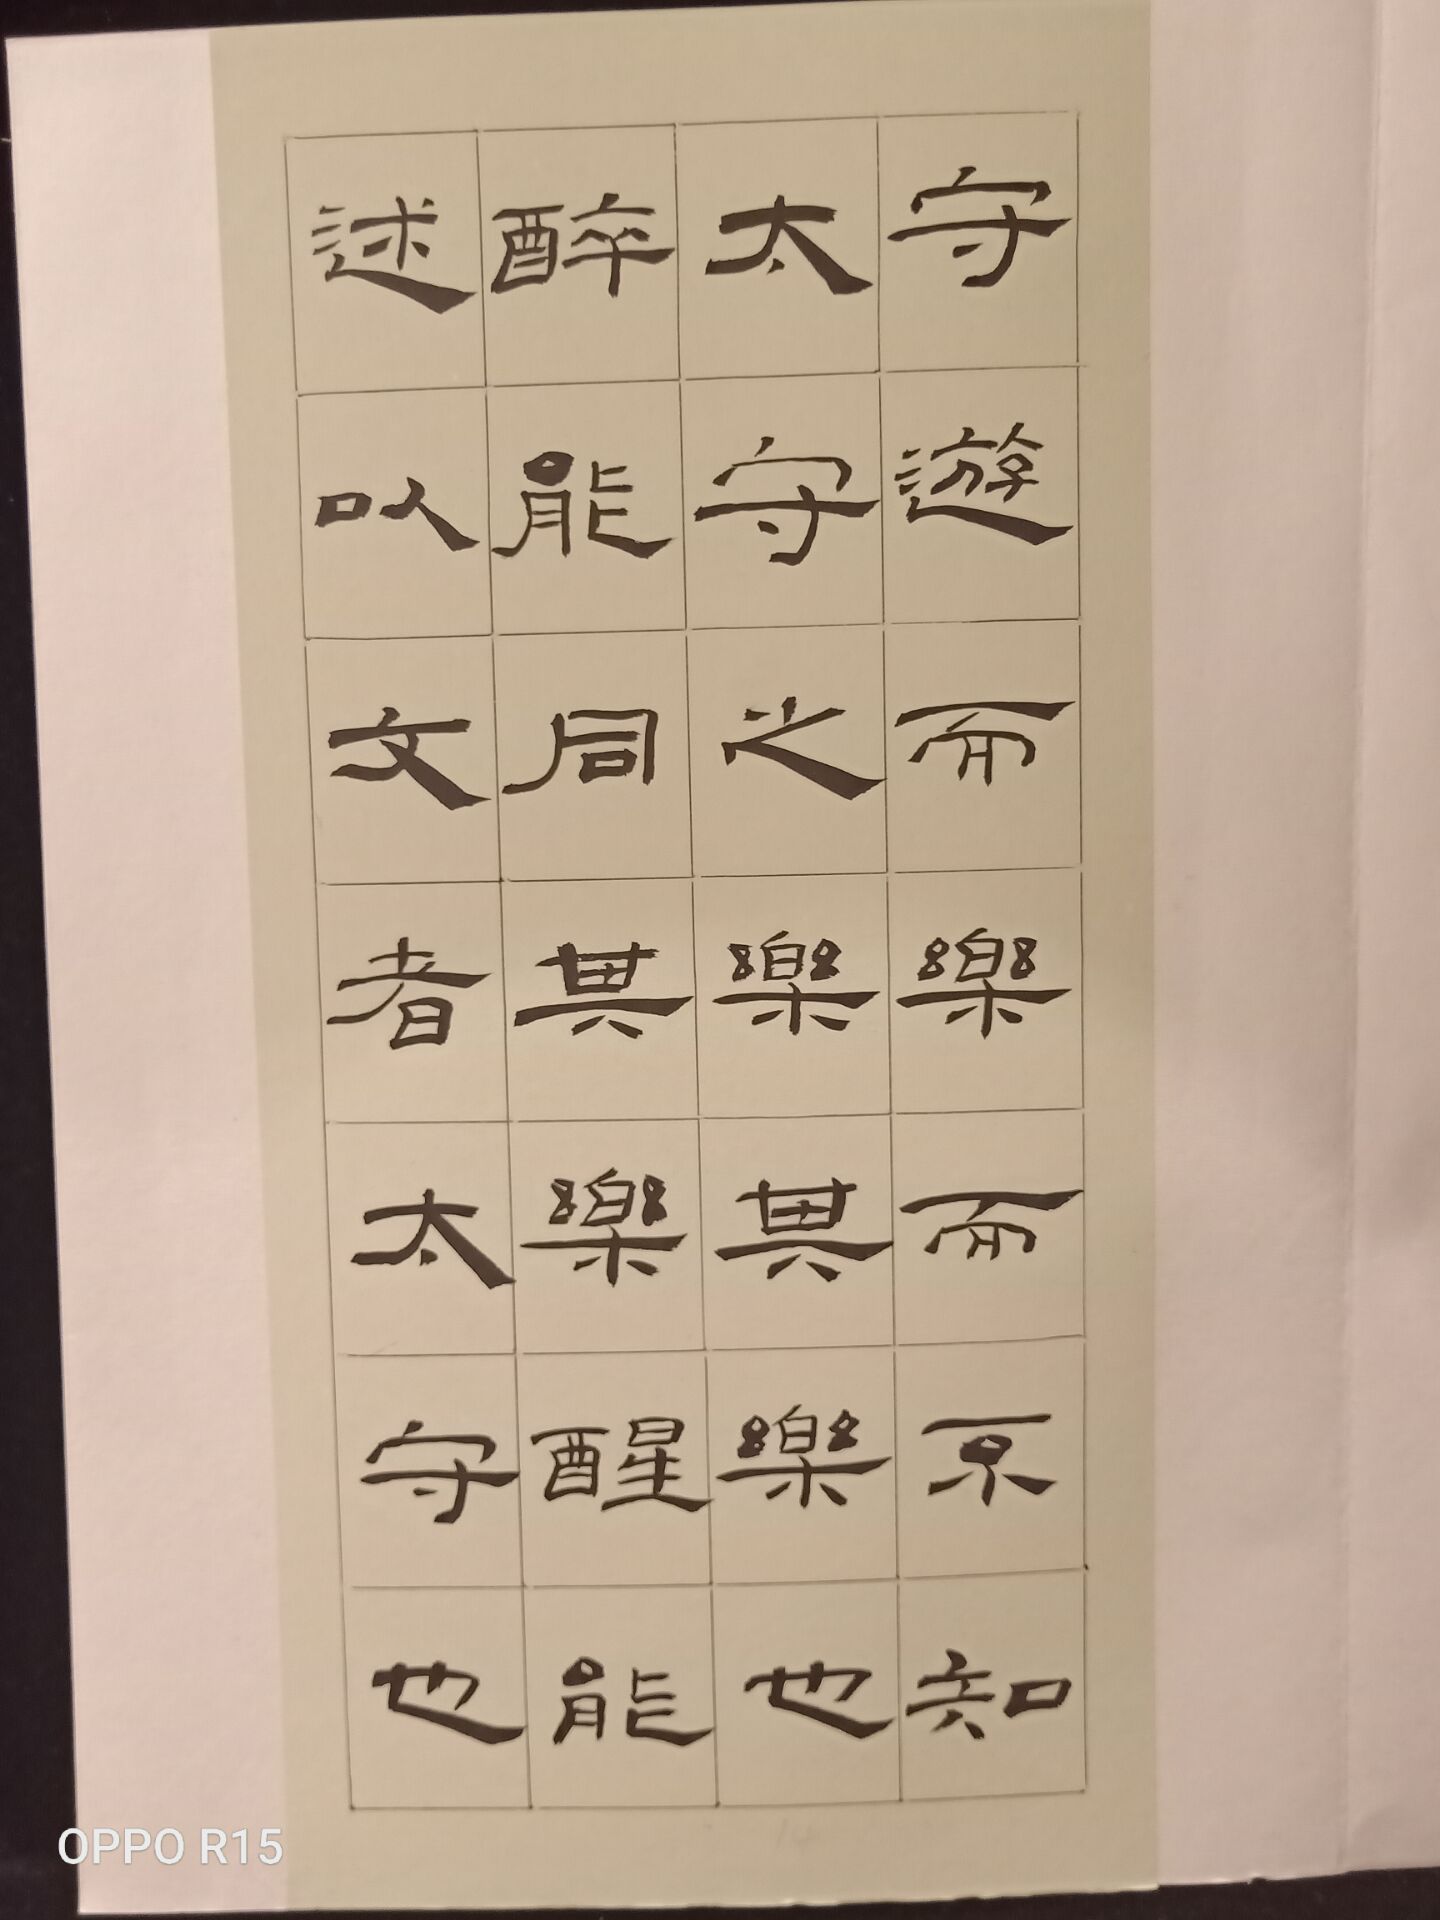 守遊而樂而不知
太守之樂其樂也
醉能同其樂醒能
述以文者太守也
OPPO R15